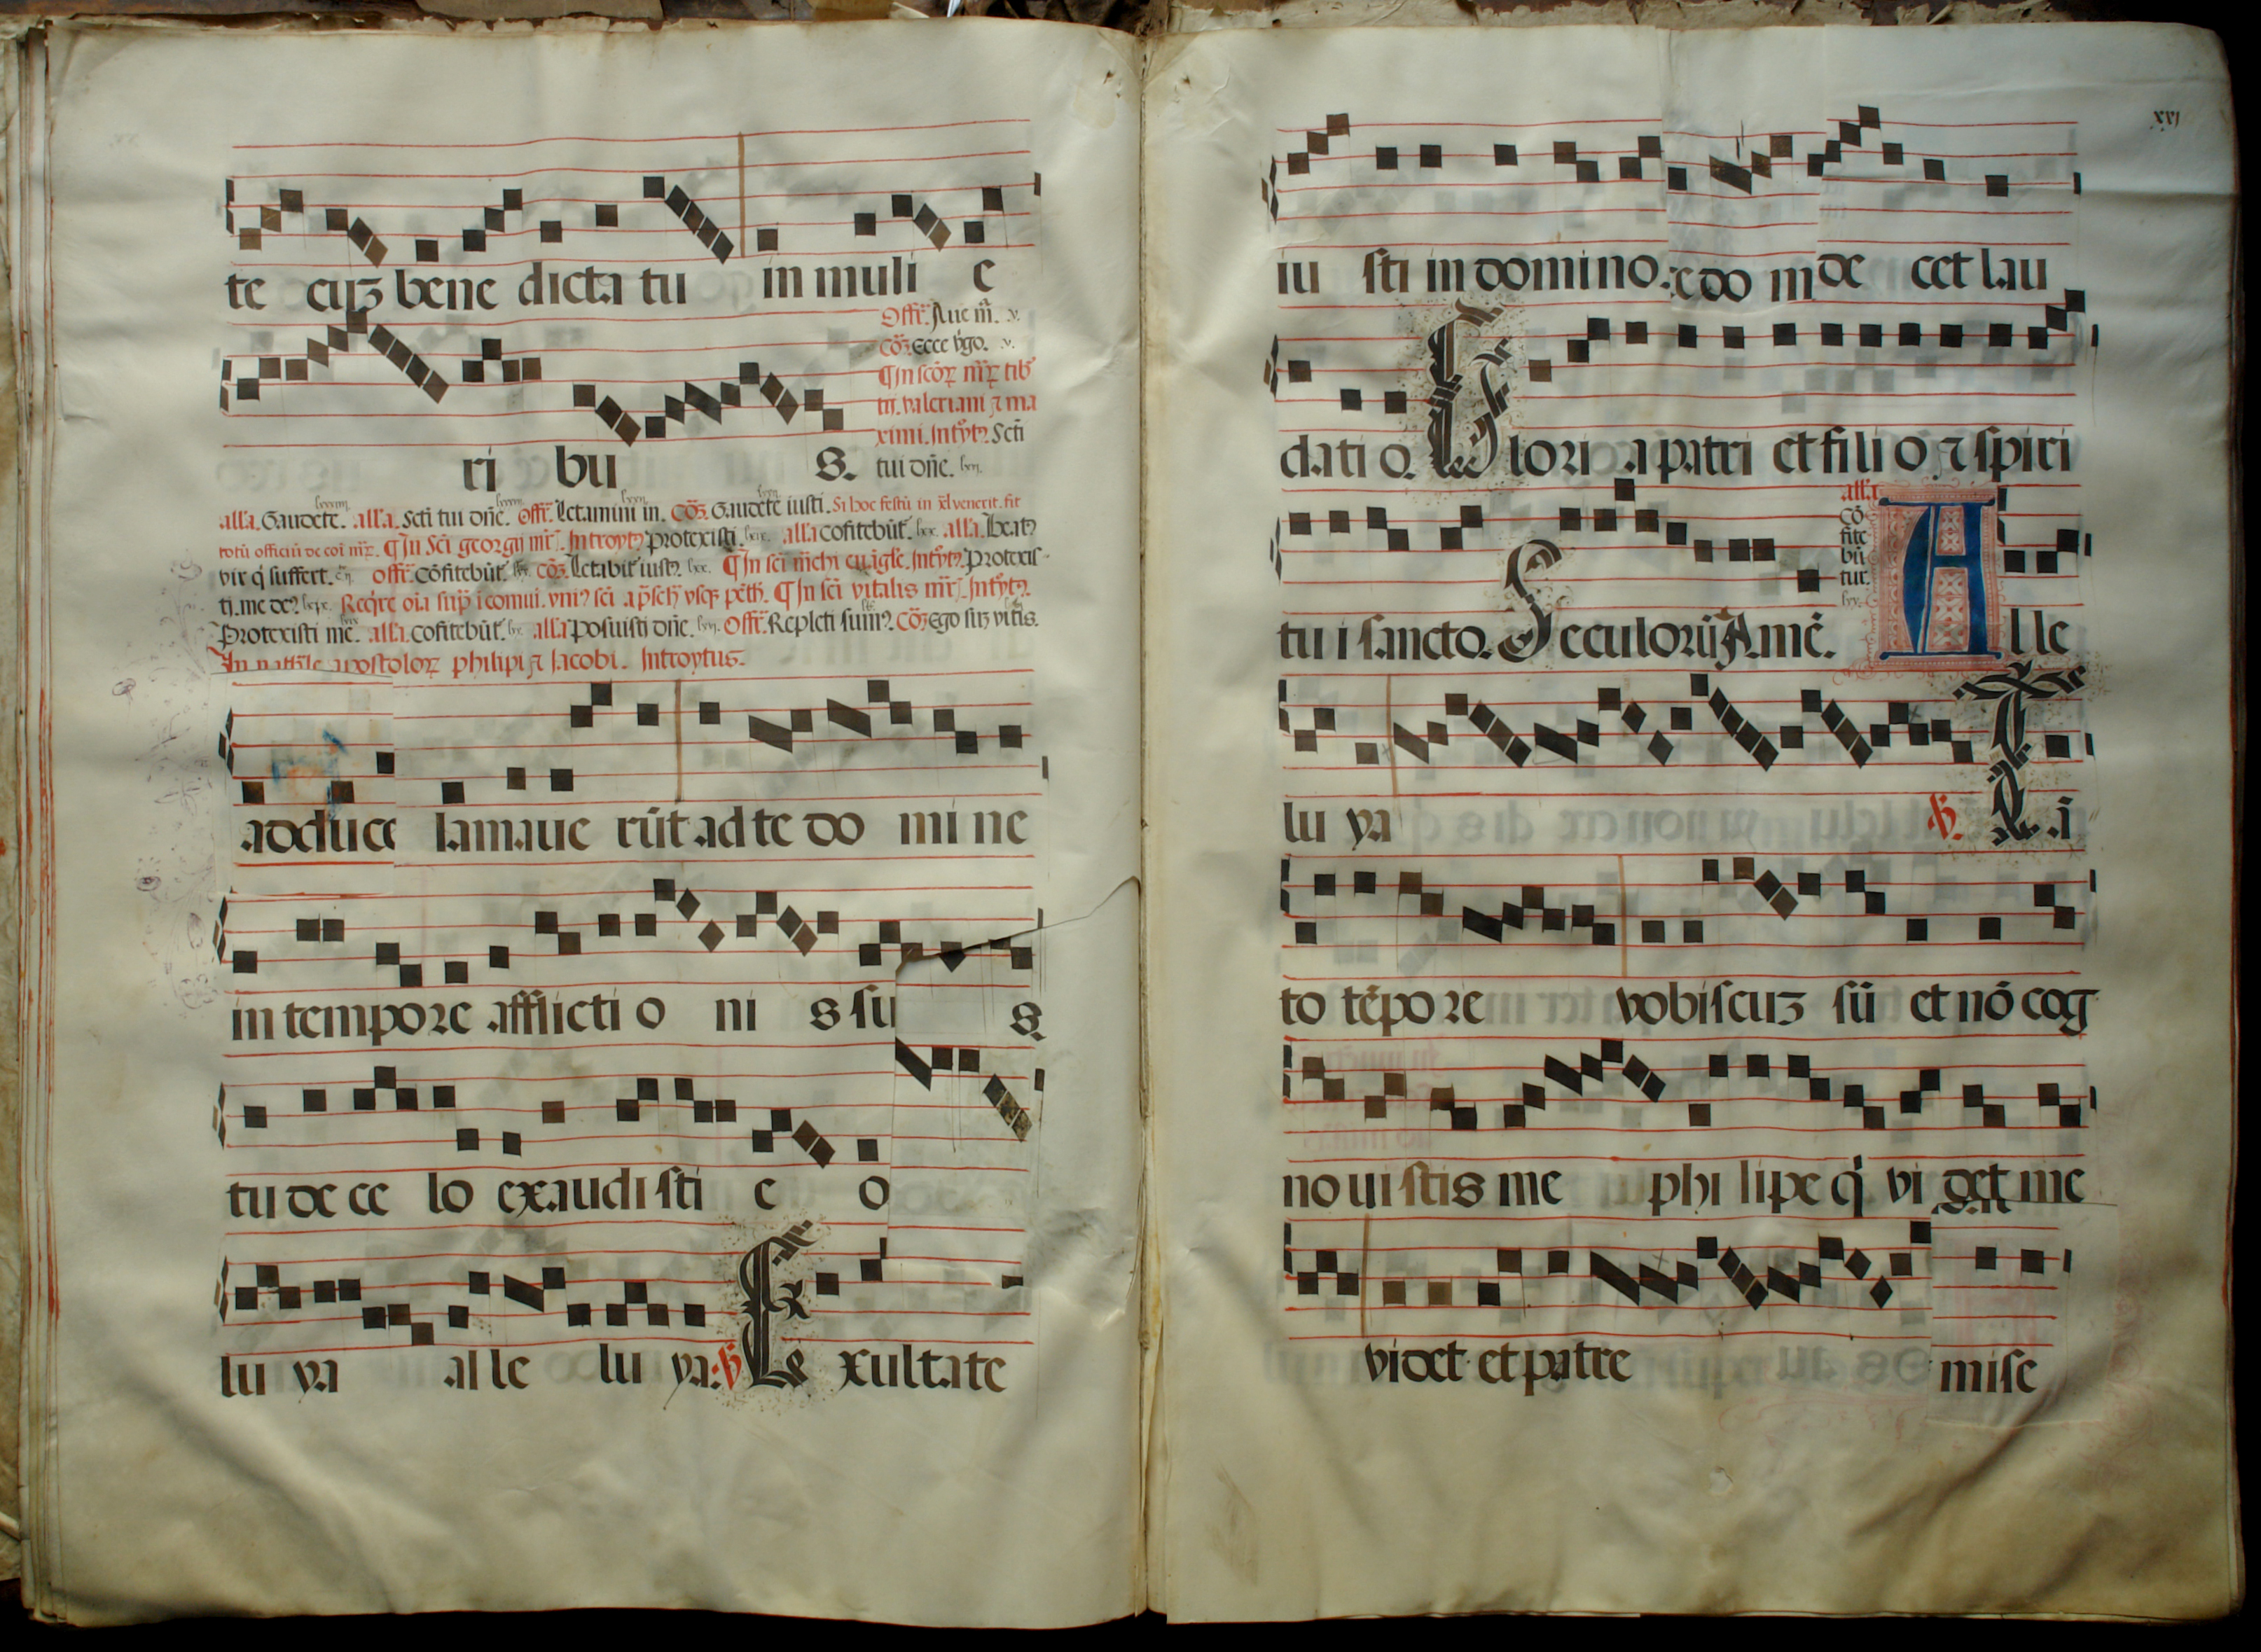 te cuȝ bene dicta tu in muli e
Offr̄. Aue m̄. v.
Cō. Ecce v̓go. v.
¶ In scōꝝ mr̄ꝝ tib
tij. valeriani ⁊ ma
ximi. Introyt᷒ Scti
ri bu s. tui dn̄e. lxvj.
all'a. Gaudete. all'a. Scti tui dn̄e. Offr̄. Letamini in. Cō. Gaudete iusti. Si hoc festū in venerit. fit
totū officiū de coī mr̄ꝝ. ¶ In Sci georgij mr̄. Introyt᷒ Protexisti. all'a cōfitebūt. all'a. Beat᷒
vir q̓ suffert. Offr̄. Cōfitebūt. Cō. Letabit᷒ iust᷒. ¶ In sci euāg̓le. Introyt᷒. Protexis-
ti. me de᷒. Reqr̄e oīa ī comui. sci ¶ In sci vitalis mr̄. Introyt᷒.
Protexisti me. all'a. cōfitebūt. all'a Posuisti dn̄e. Offr̄. Repleti sum᷒. Cō Ego suȝ vitis.
In natale apostoloꝝ philipi ⁊ Jacobi. Introytus.
lamaue rūt ad te do mi ne
in tempore afflicti o ni s su s.
tu de ce lo exaudi sti e o
lu ya al le lu ya: ℣ Exultate
xvj
iu sti in domino: e do m de cet lau
dati o. Glori a patri et fili o ⁊ spiri
all'a
Cō
fite
bū
tur.
lxv.
tu i sancto. Seculorū Amē. A l le
lu ya ℣. Tā
to tēpo re vobiscuȝ sū et nō cog
no ui stis me phi lipe q̓ vi det me
videt et patre mise